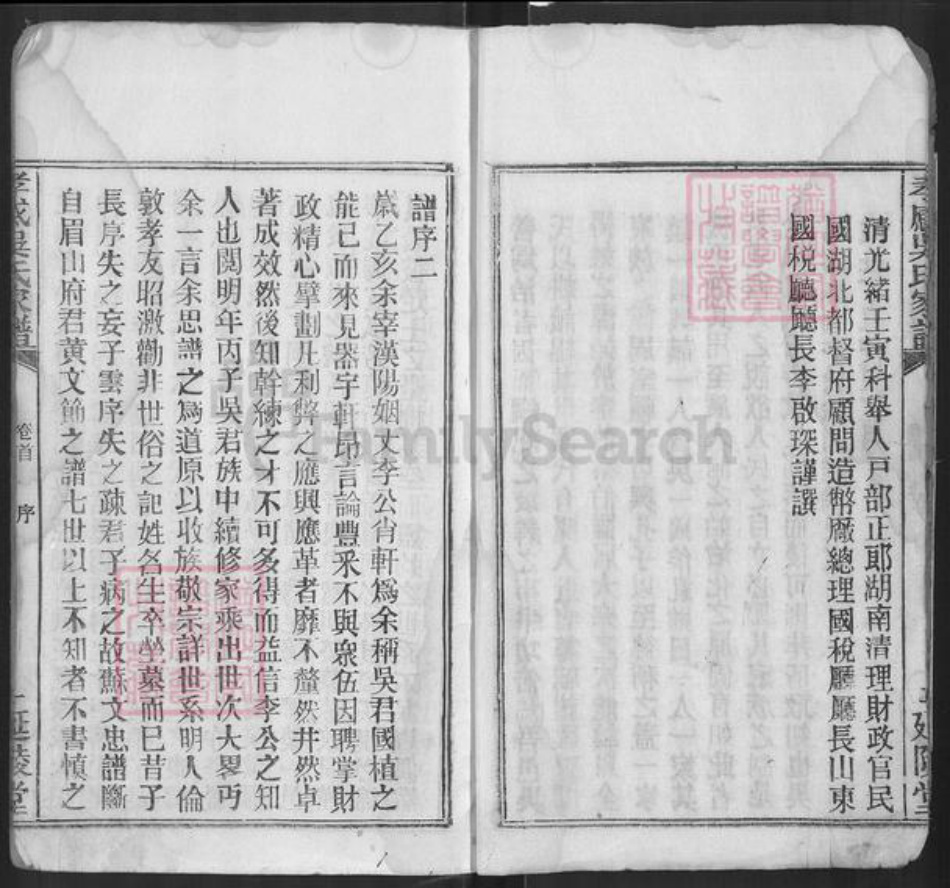 清光緒壬寅科舉人戸部正郎湖南清理財政官民
國湖北都督府顧問造幣厰總理國稅廳廳長山東
國稅廳廳長李啟琛謹譔
譜序二
嵗乙亥余宰漢陽姻丈李公肯軒爲余稱吳君國植之
能已而來見器宇軒昂言論豐釆不與衆伍因聘掌財
政精心擘劃凡利弊之應興應革者靡不釐然井然卓
著成效然後知幹練之才不可多得而益信李公之知
人也閱明年丙子吳君族中續修家乘出世次大畧丐
余一言余思譜之爲道原以收族敬宗詳世系明人倫
敦孝友昭激勸非世俗之記姓名生卒塋墓而巳昔子
長序失之妄子雲序失之疎君子病之故蘇文忠譜斷
自眉山府君黃文節之譜七世以上不知者不書慎之
孝感吳氏家譜
卷首
序
二延陵堂
FamilySearch